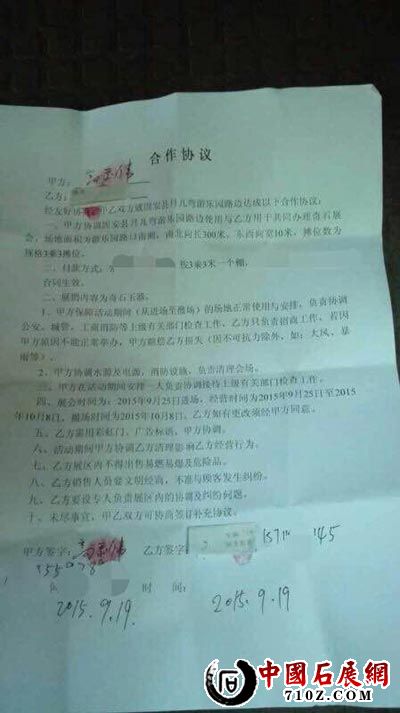 合作协议
甲方:
乙方:
经友好协商,甲乙双方就固安县月儿弯游乐园路边达成以下合作协议:
一、甲方协调固安县月儿弯游乐园路边使用与乙方用于共同办理奇石展
会,场地面积为游乐园路以南侧,南北向长300米,东西向宽10米,摊位数为
规格3乘3摊位。
二、付款方式: 按3乘3米一个棚,
合同生效。
二、展销内容为奇石玉器。
1、甲方保障活动期间(从进场至撤场)的场地正常使用与安排,负责协调
公安、城管、工商消防等上级有关部门检查工作。乙方只负责招商工作,若因
甲方原因不能正常举办,甲方赔偿乙方损失(因不可抗力除外,如:大风、暴
雨等)。
2、甲方协调水源及电源,消防设施,负责清理会场。
三、甲方在活动期间安排一人负责协调接待上级有关部门检查工作。
四、展会时间为:2015年9月25日进场,经营时间为2015年9月25日至2015
年10月8日,撤场时间为2015年10月8日。乙方如有更改须经甲方同意。
五、乙方需用彩虹门、广告标语,甲方协调。
六、活动期间甲方协调乙方清理影响乙方经营行为。
七、乙方展区内不得出售易燃易爆及危险品。
八、乙方销售人员要文明经商,不准与顾客发生纠纷。
九、乙方要设专人负责展区内的协调及纠纷问题。
十、未尽事宜,甲乙双方可协商签订补充协议。
甲方签字: 乙方签字: 45
时间:
2015.9.19. 2015.9.19
中國石展網
710Z.COM